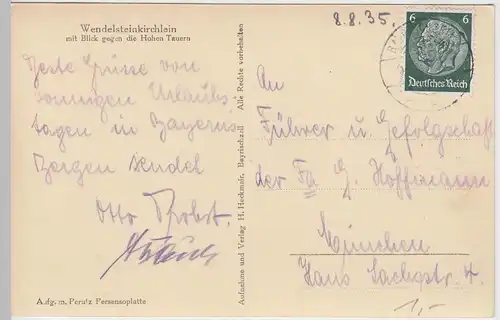 Wendelsteinkirchlein
mit Blick gegen die Hohen Tauern
8.8.35.
6 6
Deutsches Reich
Beste Grüsse von
sonnigen Urlaubs-
tagen in Bayerns
Bergen sendet
Otto Probst.
Aufg. m. Perutz Persensoplatte
Aufnahme und Verlag H. Heckmair, Bayrischzell Alle Rechte vorbehalten
An
Führer u. Gefolgschaft
der Fa G. Hoffmann
München
Hans Sachsstr. 4.
1,-